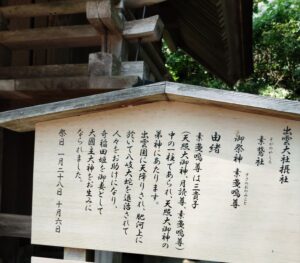 出雲大社摂社
そがのやしろ
素鵞社
御祭神 素戔嗚尊
すさのおのみこと
由緒
素戔嗚尊は三貴子
(天照大御神、月読尊、素戔嗚尊)
中の一柱であられ、天照大御神の
弟神にあたります。
出雲國に天降りされ、肥河上に
於いて八岐大蛇を退治されて
人々をお助けになり、
奇稲田姫を御妻として
大國主大神をお生みに
なられました。
祭日 一月二十八日 十月六日